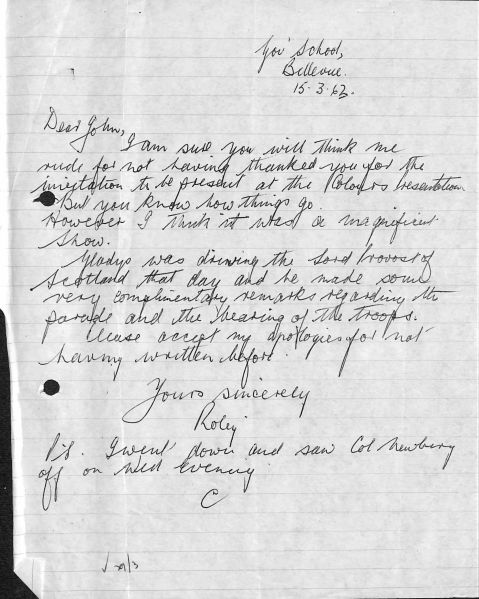 Gov School,
Bellevue.
15.3.62.
Dear John,
I am sure you will think me
rude for not having thanked you for the
invitation to be present at the Colours Presentation
But you know how things go.
However I think it was a magnificent
show.
Gladys was driving the Lord Provost of
Scotland that day and he made some
very complimentary remarks regarding the
parade and the bearing of the troops.
Please accept my apologies for not
having written before.
Yours sincerely
P.S. I went down and saw Col Newbery
off on Wed evening.
C